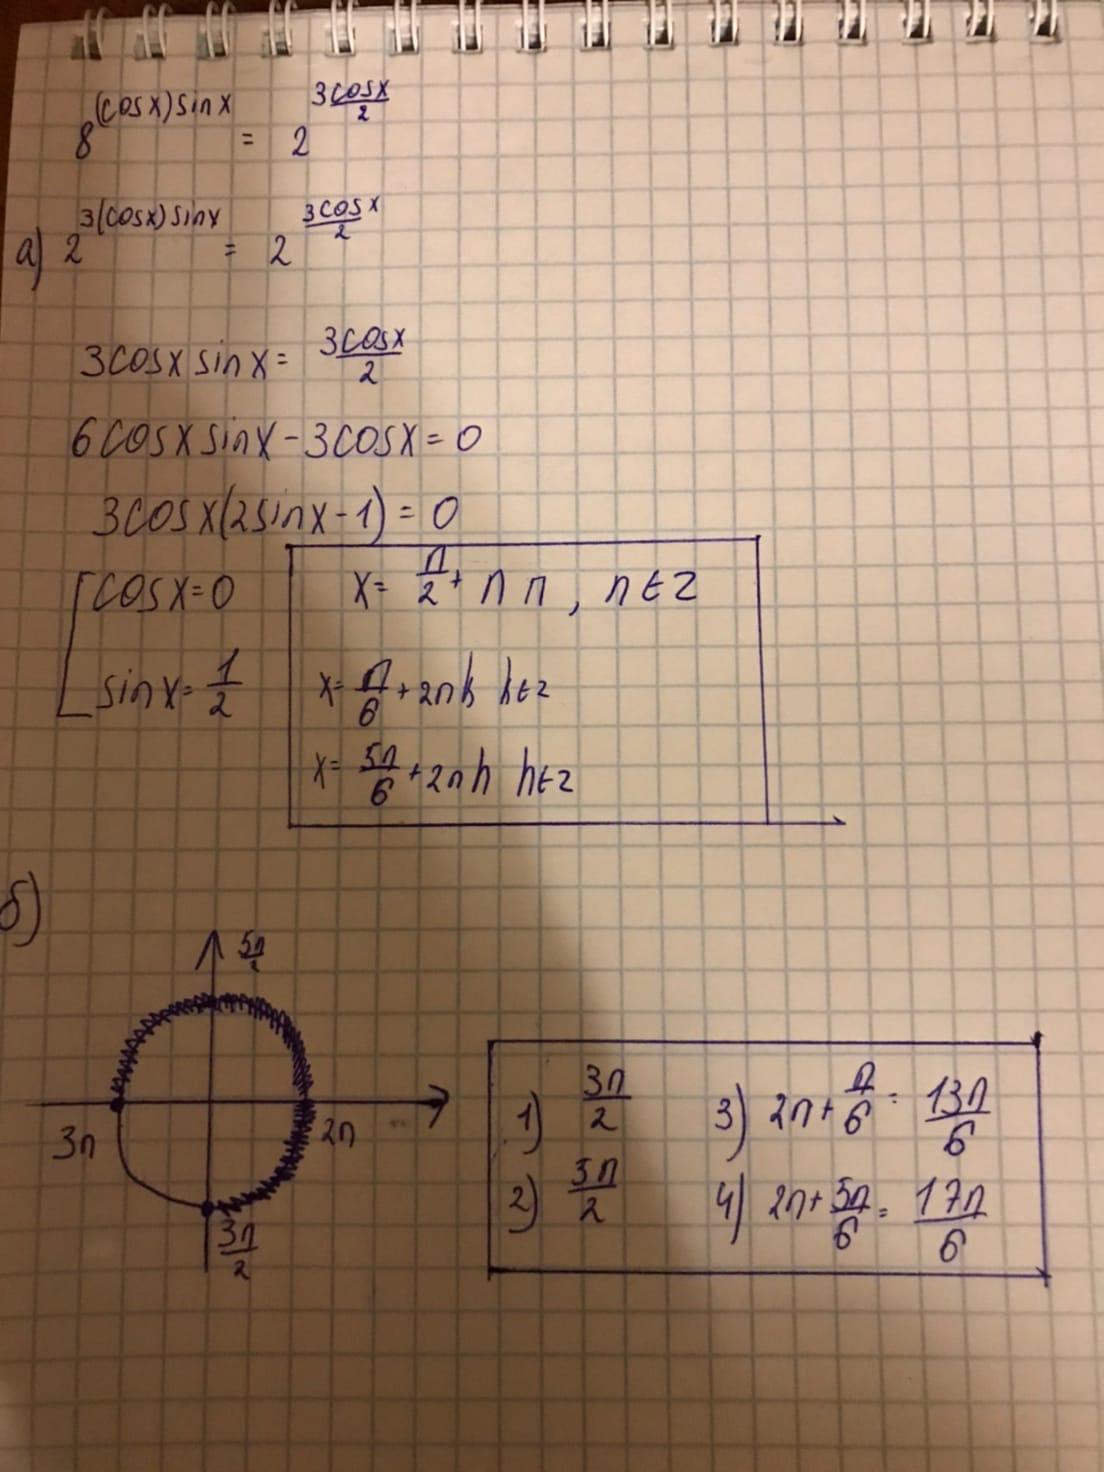 8^((cosx)sinx) = 2^(3cosx/2)
а) 2^(3(cosx)sinx) = 2^(3cosx/2)
3cosx sinx = 3cosx/2
6cosx sinx - 3cosx = 0
3cosx(2sinx - 1) = 0
[cosx = 0 x = π/2 + πn, n∈Z
sinx = 1/2 x = π/6 + 2πk k∈Z
x = 5π/6 + 2πn n∈Z
б)
5π/2
3π 2π
3π/2
1) 3π/2 3) 2π + π/6 = 13π/6
2) 5π/2 4) 2π + 5π/6 = 17π/6